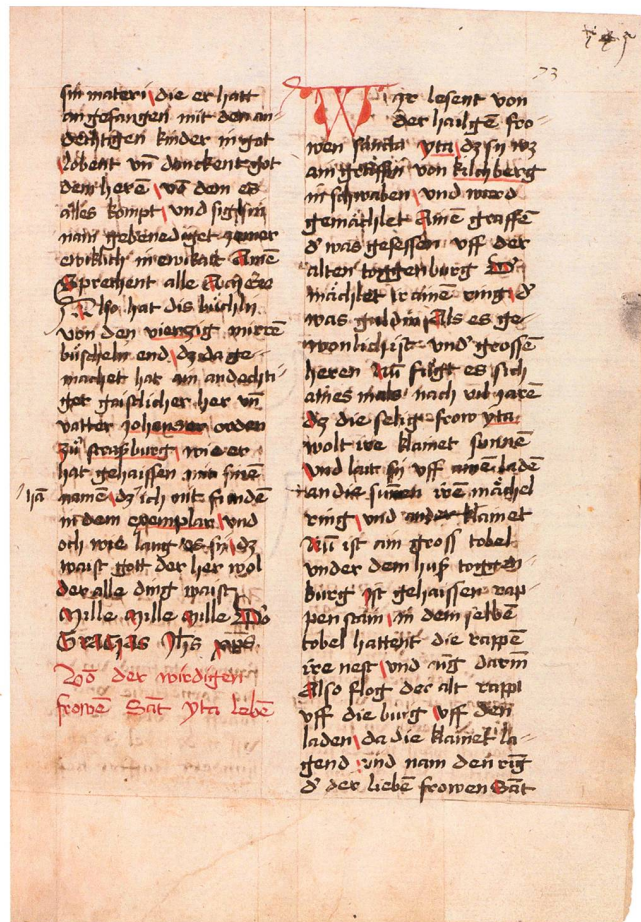 73
sin materi die er hatt
angefangen mit den an-
dechtigen kinder in got
lobent vn̄ danckent got
dem herē vō dem es
alles kompt vnd sig sin
nam gebenedÿget
ewiklich in ewikait Amē
Sprechent alle
Also hat dis bu̍chli
von den viertzig mirrē
bu̍scheln end dz da ge-
machet hat ain andechti-
ger gaistlicher her vn̄
vatter Johenser orden
zu̍ straßburg wie er
hat gehaissen sinē
hā namē dz ich nit fundē
in dem exemplar vnd
och wie lang es sÿ dz
waist gott der her wol
der alle ding waist
Mille Mille Mille
Gracias Jhs xps
Vō der wirdigen
frowē Sāt yta lebē
Wir lesent von
der hailgē fro-
wen sancta yta dz sÿ wz
ain gräffin von kilchberg
in schwaben vnd ward
gemächlet Ainē graffē
d was gesessen vff der
alten toggenburg
mächlet ir ainē ring d
was guldin Als es ge-
wonlich ist vnd grossē
heren Nū fu̍gt es sich
aines mals nach vil jarē
dz die selig frow yta
wolt ire klainet sunnē
vnd lait sÿ vff ainen ladē
an die sunen iren mächel
ring vnd ander klainet
Nū ist ain gross tobel
vnder dem huß toggen-
burg ist gehaissen rap-
penstain in dem selbē
tobel hattent die rappē
ire nest vnd darin
Also flog der alt rapp
vff die burg vff den
laden da die klainet la-
gend vnd nam den ring
d der liebē frowen Sāt